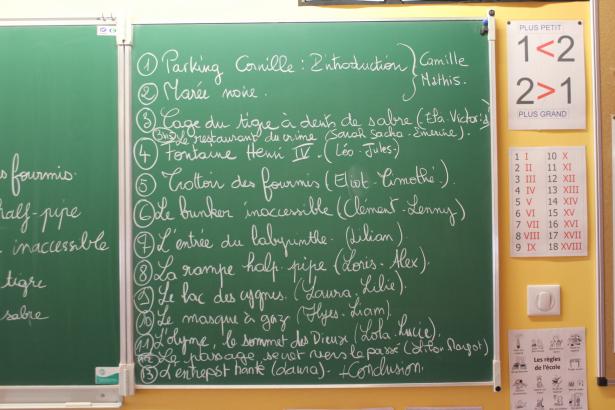 s fourmis.
half-pipe
inaccessible
tigre
sabre
① Parking Cornille : introduction } Camille Mathis.
② Marée noire.
③ Cage du tigre à dents de sabre (Efa Victoria)
3bis Le restaurant du crime (Sarah Sacha - Emerine).
④ Fontaine Henri IV. (Léo - Jules.)
⑤ Trottoir des fourmis (Eliot - Timothé).
⑥ Le bunker inaccessible (Clément - Lenny)
⑦ L'entrée du labyrinthe. (Lilian).
⑧ La rampe half-pipe (Loris - Alex).
⑨ Le lac des cygnes. (Laura, Lilie).
⑩ Le masque à gaz (Ilyes - Liam).
⑪ L'olympe, le sommet des Dieux (Lola - Lucie).
⑫ Le passage secret vers le passé (Margot)
⑬ L'entrepôt hanté (Laura). + Conclusion.
PLUS PETIT
1<2
2>1
PLUS GRAND
1 I 10 X
2 II 11 XI
3 III 12 XII
4 IV 13 XIII
5 V 14 XIV
6 VI 15 XV
7 VII 16 XVI
8 VIII 17 XVII
9 IX 18 XVIII
Les règles
de l'école